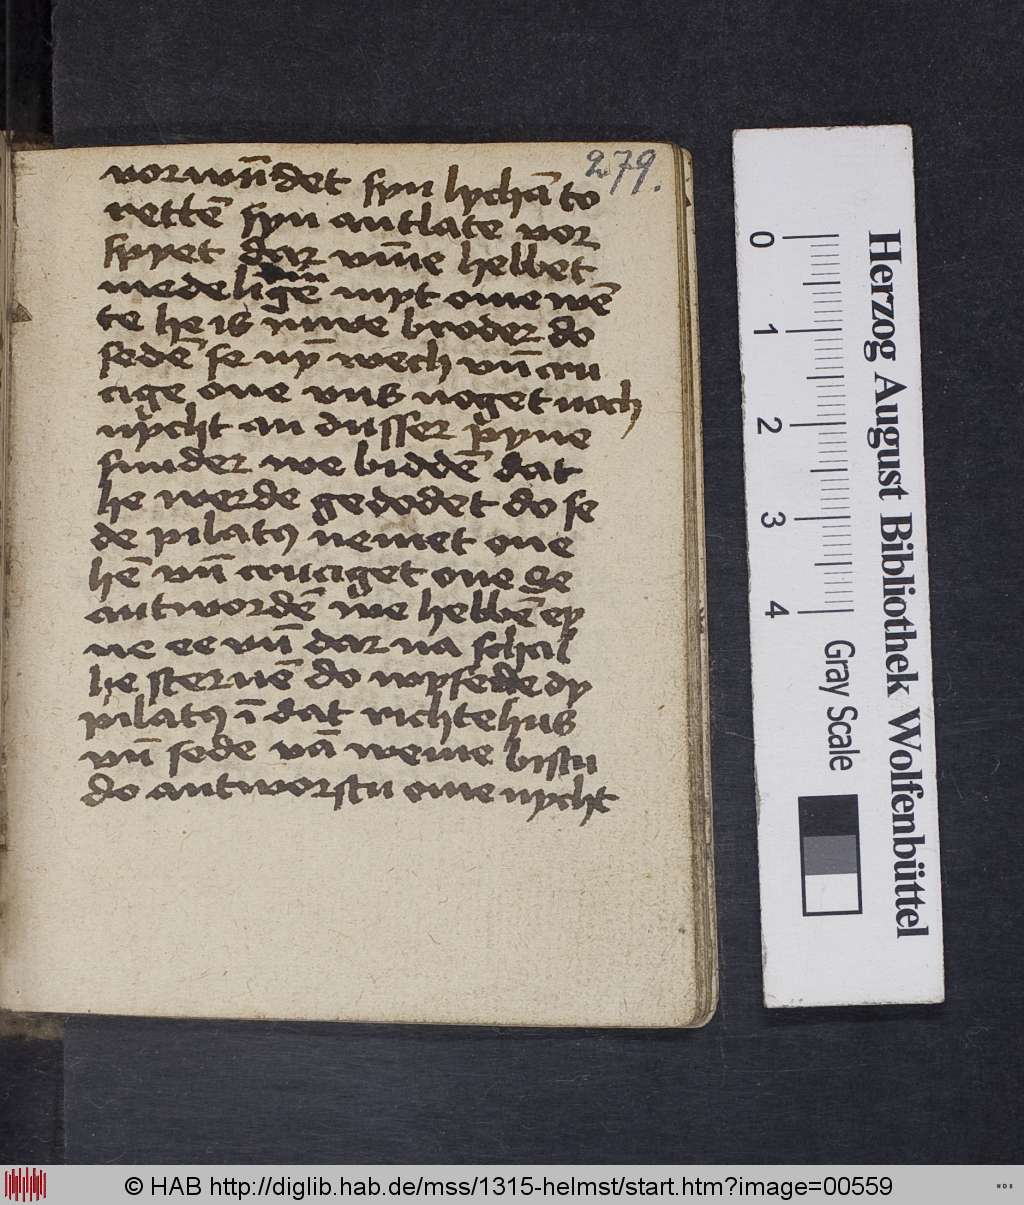 279.
vorwūdet syn lychā to
rettē syn antlate vor
spyet dar vm̄e hebbet
medelidinge myt ome wē
te he is iuwe broder do
sedē se nȳ wech vn̄ cru
cige one vns noget noch
nycht an dusser pyne
sunder we biddē dat
he werde gedodet do se
de pilatꝰ nemet one
hē vn̄ cruciget one Se
antwordē we hebbē ey
ne ee vn̄ dar na schal
he steruē do
pilatꝰ ī dat richtehus
vn̄ sede vā weme bistu
do antworstu ome nycht
0 1 2 3 4
Gray Scale
Herzog August Bibliothek Wolfenbüttel
© HAB http://diglib.hab.de/mss/1315-helmst/start.htm?image=00559